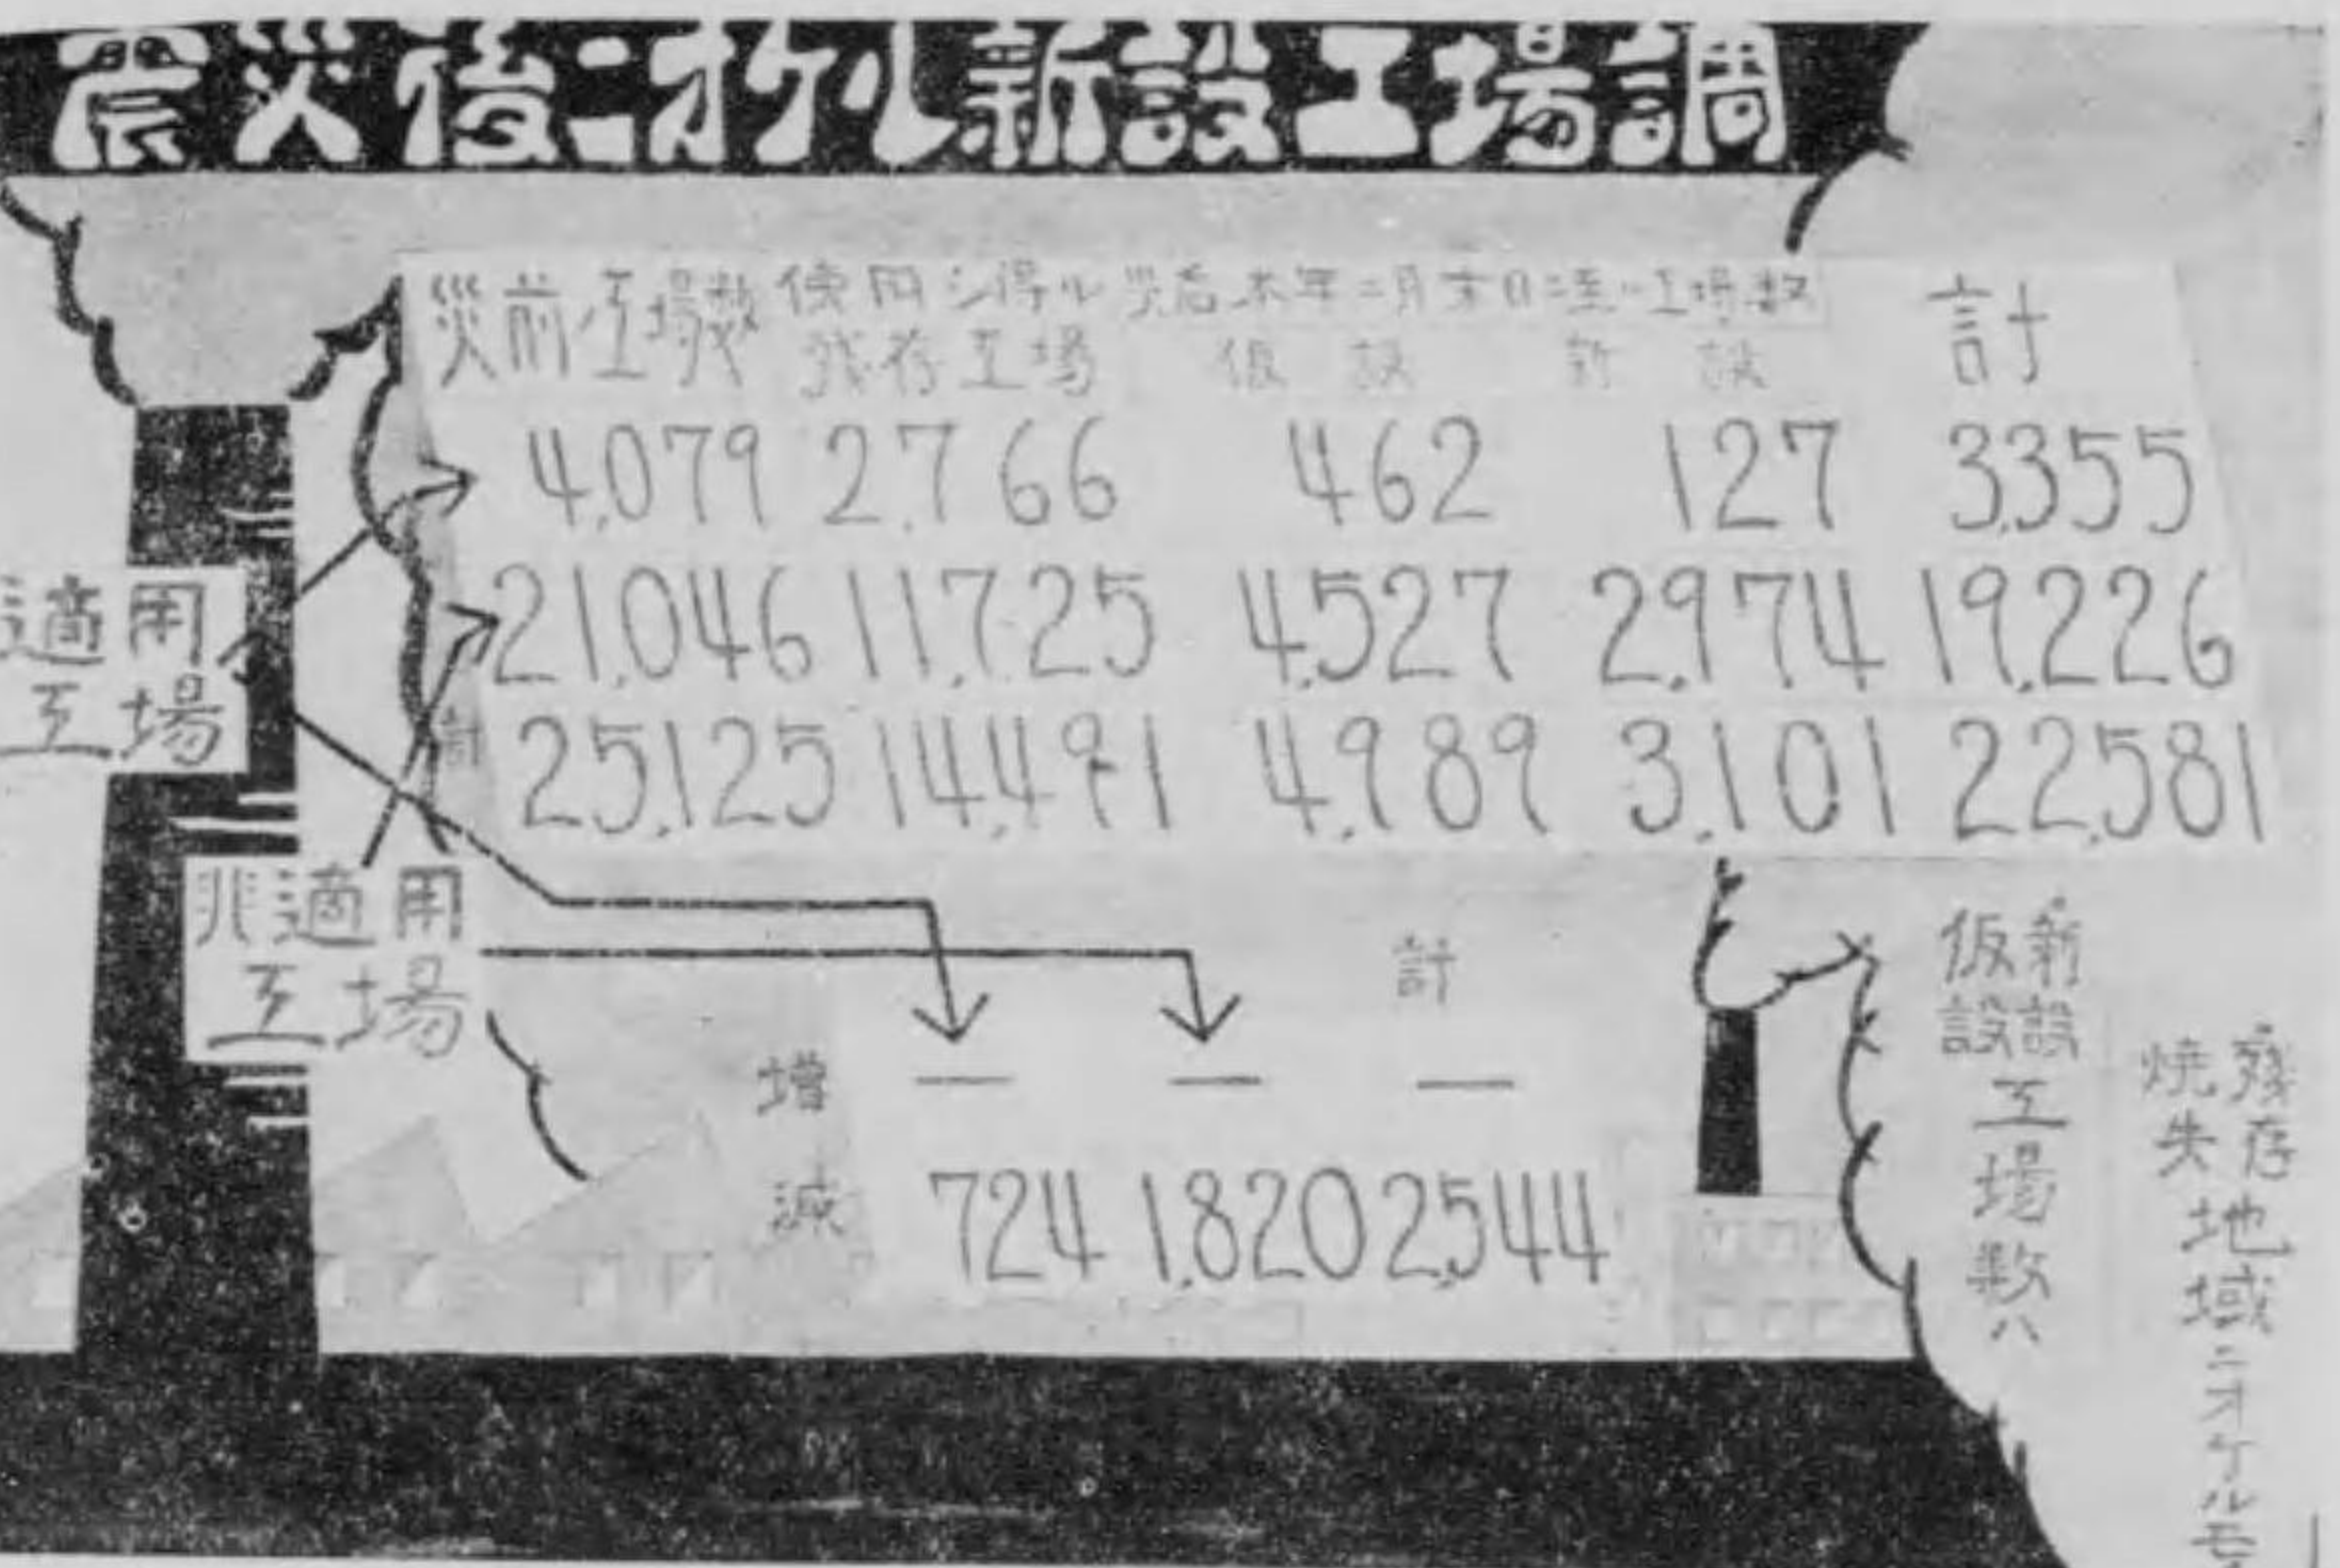 震災後ニオケル新設工場調
災前ノ工場数 使用シ得ル残存工場 災后本年二月末日迄ノ工場数 仮設 新設 計
適用工場
4,079 2,766 462 127 3,355
非適用工場
21,046 11,725 4,527 2,974 19,226
計 25,125 14,491 4,989 3,101 22,581
計
増 — — —
減 724 1,820 2,544
新設
仮設
工場数ハ
残存
焼失
地域ニオケルモ